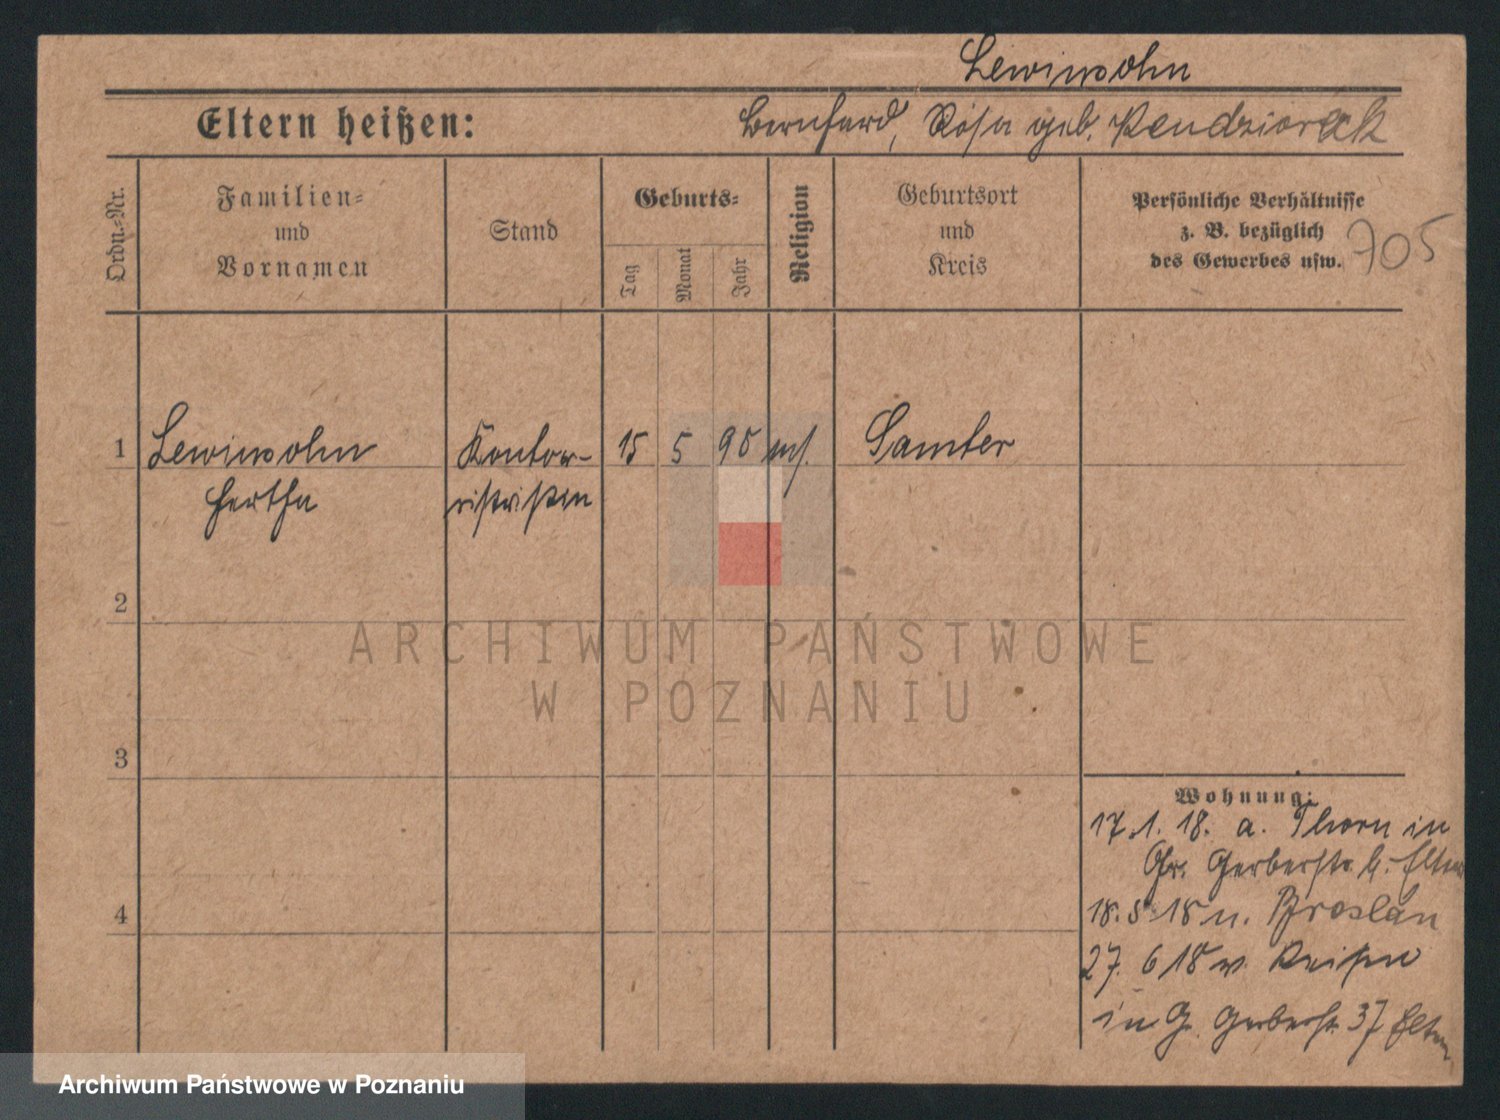 Lewinsohn
Eltern heißen: Bernhard, Rosa geb. Kendziorek
Ordn.=Nr.
Familien=
und
Vornamen
Stand
Geburts=
Tag
Monat
Jahr
Religion
Geburtsort
und
Kreis
Persönliche Verhältnisse
z. B. bezüglich
des Gewerbes usw.
705
1 Lewinsohn Kontor- 15 5 95 mos. Samter
Hertha ristin
2
3
4
ARCHIWUM PAŃSTWOWE
W POZNANIU
Wohnung:
17.1.18. a. Thorn in
Gr. Gerberstr. b. Eltern
18.5.18 n. Breslau
27. 6 18 v. Reisen
in G. Gerberstr. 37 Eltern
Archiwum Państwowe w Poznaniu